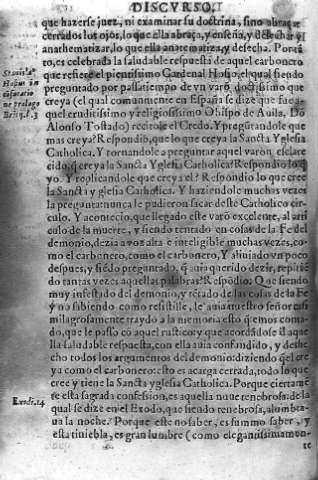 DISCVRSO. I
que hazerse juez, ni examinar su doctrina, sino abraçar
cerrados los ojos, lo que ella abraça, y enseña, y desechar y
anathematizar, lo que ella anatematiza, y desecha. Por tã
to, es celebrada la saludable respuesta de aquel carbonero
que refiere el plenissimo Cardenal Hosio, el qual siendo
preguntado por passatiempo de vn varõ doctissimo que
creya (el qual comunmente en España se dize que fue a-
quel eruditissimo y religiosissimo Obispo de Auila, Dõ
Alonso Tostado) recitole el Credo. Y preguntandole que
mas creya? Respondio, que lo que creya la Sancta Yglesia
Catholica. Y tornandole a preguntar aquel varon esclare
cido, q̃ creya la Sancta Yglesia Catholica? Respondio lo q̃
yo. Y replicandole que creya el? Respondio lo que cree
la Sancta y glesia Catholica. Y haziendole muchas vezes
la pregunta: nunca le pudieron sacar deste Catholico cir-
culo. Y acontecio, que llegado este varõ excelente, al arti
culo de la muerte, y siendo tentado en cosas de la Fe del
demonio, dezia a voz alta e inteligible muchas vezes, co-
mo el carbonero, como el carbonero, Y aliuiado vn poco
despues, y siẽdo preguntado, q̃ auia querido dezir, repitiẽ
do tantas vezes aquellas palabras? Respõdio: Que siendo
muy infestado del demonio, y tẽtado de las cosas de la Fe
y no sabiendo como resistille, le auia nuestro señor casi
milagrosamente traydo a la memoria esto q̃ emos conta-
do, que le passo cõ aquel rustico: y que acordãdose d̃ aque
lla saludable respuesta, con ella auia confundido, y desse
cho todos los argumentos del demonio: diziendo q̃ el cre
ya como el carbonero: esto es acarga cerrada, todo lo que
cree y tiene la Sancta yglesia Catholica. Porque ciertamẽ
te esta sagrada confession, es aquella nuue tenebrosa: de la
qual se dize en el Exodo, que siendo tenebrosa, alumbra-
ua la noche. Porque este no saber, es summo saber, y
esta tiniebla, es gran lumbre (como elegantissimamen-
te
Hosius in
ne prologo
Exodi. 14